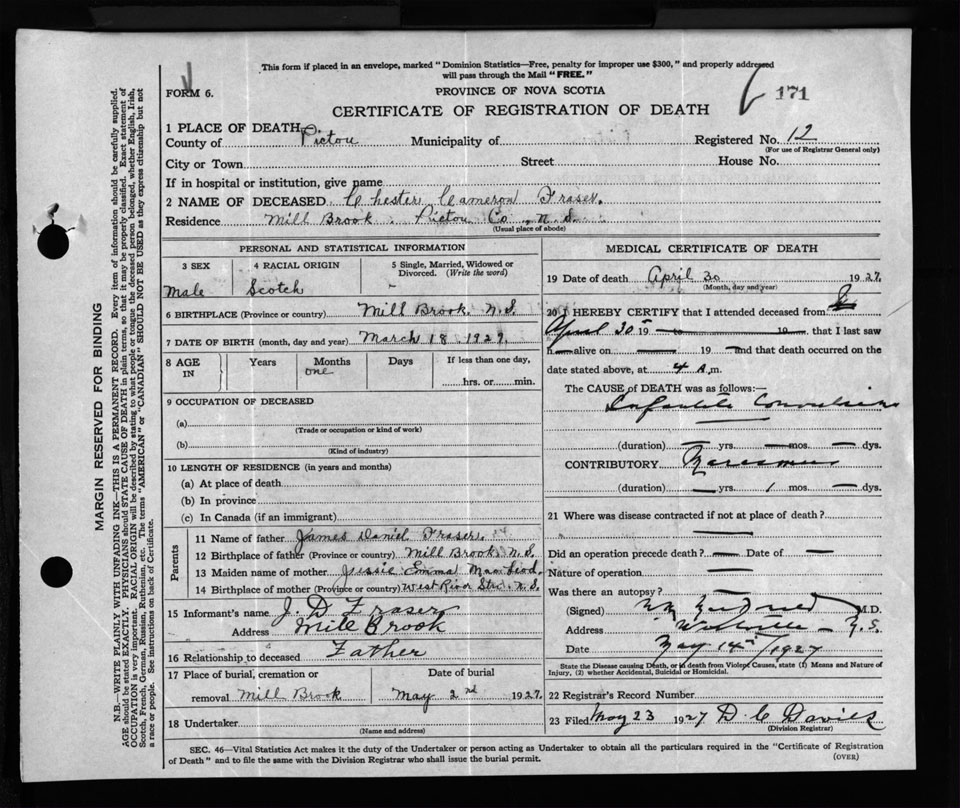 This form if placed in an envelope, marked "Dominion Statistics—Free, penalty for improper use $300," and properly addressed
will pass through the Mail "FREE."
FORM 6.
PROVINCE OF NOVA SCOTIA
171
CERTIFICATE OF REGISTRATION OF DEATH
1 PLACE OF DEATH
County of Pictou Municipality of Registered No. 12
(For use of Registrar General only)
City or Town Street House No.
If in hospital or institution, give name
2 NAME OF DECEASED Chester Cameron Fraser.
Residence Mill Brook Pictou Co., N.S.
(Usual place of abode)
PERSONAL AND STATISTICAL INFORMATION
3 SEX 4 RACIAL ORIGIN 5 Single, Married, Widowed or
Divorced. (Write the word)
Male Scotch –
6 BIRTHPLACE (Province or country) Mill Brook. N.S.
7 DATE OF BIRTH (month, day and year) March 18 1927.
8 AGE Years Months Days If less than one day,
IN one
hrs. or min.
9 OCCUPATION OF DECEASED
(a)
(Trade or occupation or kind of work)
(b)
(Kind of industry)
10 LENGTH OF RESIDENCE (in years and months)
(a) At place of death
(b) In province
(c) In Canada (if an immigrant)
Parents
11 Name of father James Daniel Fraser
12 Birthplace of father (Province or country) Mill Brook N.S.
13 Maiden name of mother Jessie Emma
14 Birthplace of mother (Province or country) West River Sta. N.S.
15 Informant's name J. D. Fraser
Address Mill Brook
16 Relationship to deceased Father
17 Place of burial, cremation or Date of burial
removal Mill Brook May 2nd 1927.
18 Undertaker
(Name and address)
MEDICAL CERTIFICATE OF DEATH
19 Date of death April 30 1927.
(Month, day and year)
20 I HEREBY CERTIFY that I attended deceased from
April 30 19 — to — 19 — that I last saw
h— alive on — 19 — and that death occurred on the
date stated above, at 4 A.m.
The CAUSE of DEATH was as follows:—
Infantile Convulsions
(duration) — yrs. — mos. — dys.
CONTRIBUTORY Marasmus
(duration) — yrs. 1 mos. — dys.
21 Where was disease contracted if not at place of death?
—
Did an operation precede death? — Date of —
Nature of operation —
Was there an autopsy?
(Signed) M.D.
Address Westville – N.S.
Date May 14th/1927
State the Disease causing Death, or in death from Violent Causes, state (1) Means and Nature of
Injury, (2) whether Accidental, Suicidal or Homicidal.
22 Registrar's Record Number
23 Filed May 23 1927 D. C. Davies
(Division Registrar)
SEC. 46—Vital Statistics Act makes it the duty of the Undertaker or person acting as Undertaker to obtain all the particulars required in the "Certificate of Registration
of Death" and to file the same with the Division Registrar who shall issue the burial permit.
(OVER)
MARGIN RESERVED FOR BINDING
N.B.—WRITE PLAINLY WITH UNFADING INK—THIS IS A PERMANENT RECORD. Every item of information should be carefully supplied.
AGE should be stated EXACTLY. PHYSICIANS should STATE CAUSE OF DEATH in plain terms, so that it may be properly classified. Exact statement of
OCCUPATION is very important. RACIAL ORIGIN will be described by stating to what people or tongue the deceased person belonged, whether English, Irish,
Scotch, French, German, Russian, Ruthenian, etc. The terms "AMERICAN" or "CANADIAN" SHOULD NOT BE USED as they express citizenship but not
a race or people. See instructions on back of Certificate.